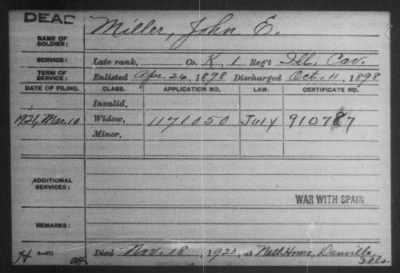 DEAD
NAME OF SOLDIER: Miller, John E.
SERVICE: Late rank, Co. K, 1 Reg't Ill. Cav.
TERM OF SERVICE: Enlisted Apr. 26, 1898 Discharged Oct. 11, 1898
DATE OF FILING. CLASS. APPLICATION NO. LAW. CERTIFICATE NO.
Invalid,
1921, Mar. 10 Widow, 1171050 July 910787
Minor,
ADDITIONAL SERVICES:
WAR WITH SPAIN
REMARKS:
Died Nov. 18, 1920, at Natl. Home, Danville,
Ills.